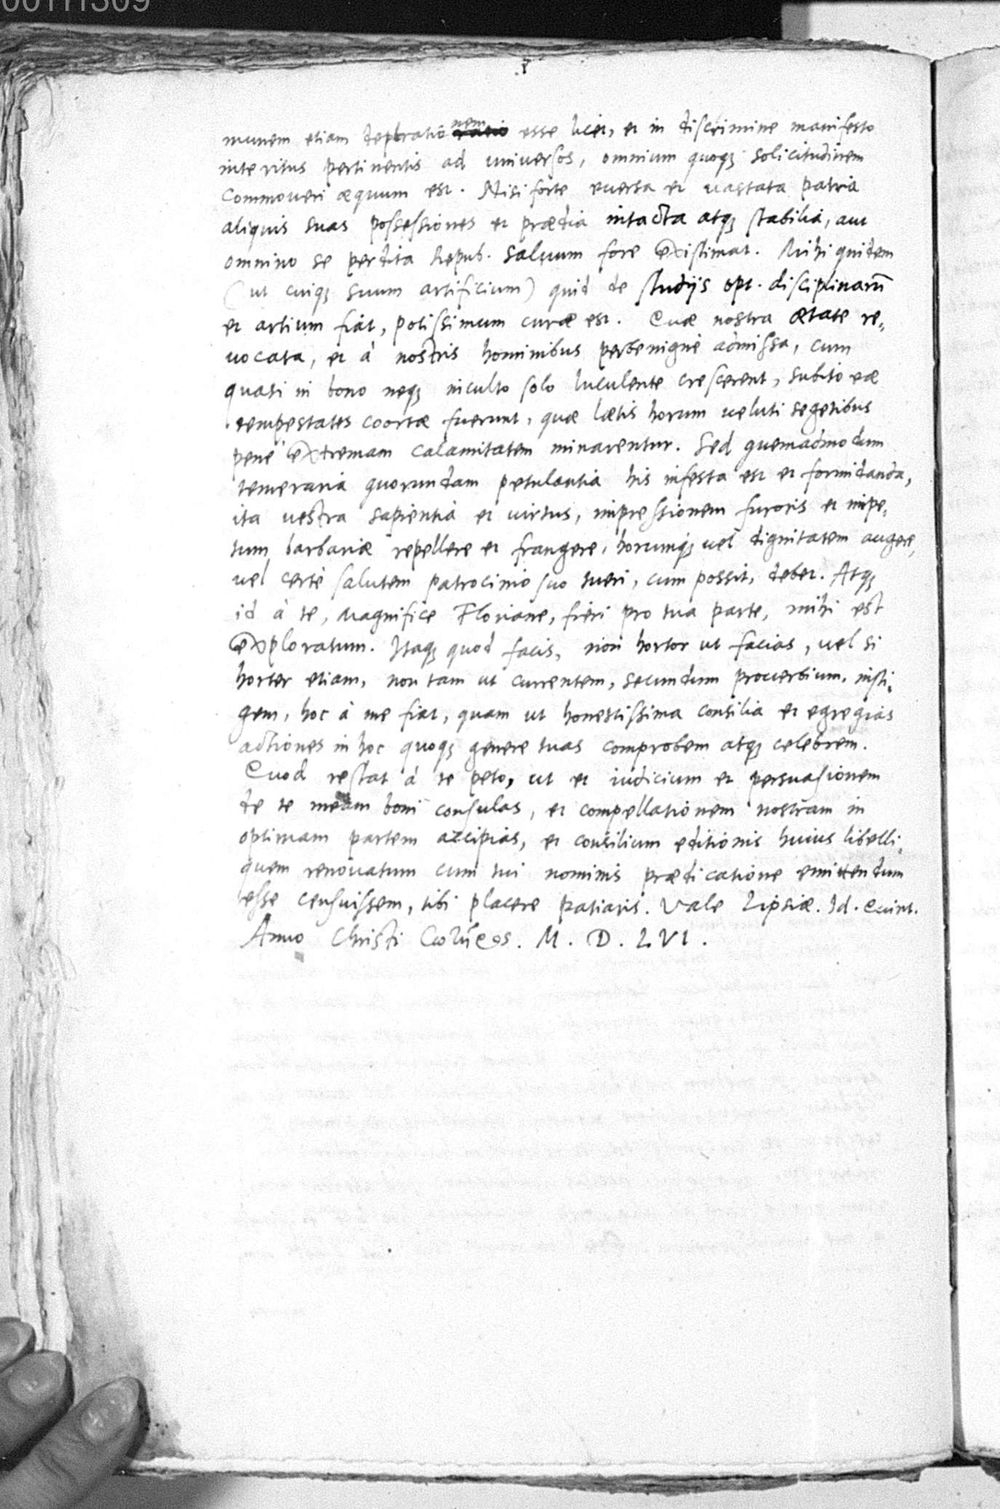 munem etiam deploratio nem esse licet, et in discrimine manifesto
interitus pertinentis ad universos, omnium quoq; solicitudinem
commoveri æquum est. Nisi forte eversa et vastata patria
aliquis suas possessiones et prædia intacta atq; stabilia, aut
omnino se perdita Repub. salvum fore existimat. Mihi quidem
(ut cuiq; suum artificium) quid de studijs opt. disciplinarū
et artium fiat, potissimum curæ est. Quæ nostra ætate re„
vocata, et à nostris hominibus perbenignè admissa, cum
quasi in bono neq; inculto solo luculente crescerent, subito eæ
tempestates coortæ fuerunt, quæ lætis horum veluti segetibus
penè extremam calamitatem minarentur. Sed quemadmodum
temeraria quorundam petulantia his infesta est et formidanda,
ita vestra sapientia et virtus, impressionem furoris et impe„
tum barbariæ repellere et frangere, horumq; vel dignitatem augere,
vel certè salutem patrocinio suo tueri, cum possit, debet. Atq;
id à te, Magnifice Floriane, fieri pro tua parte, mihi est
exploratum. Itaq; quod facis, non hortor ut facias, vel si
horter etiam, non tam ut currentem, secundum proverbium, insti„
gem, hoc à me fiat, quam ut honestissima consilia et egregias
actiones in hoc quoq; genere tuas comprobem atq; celebrem.
Quod restat à te peto, ut et iudicium et persuasionem
de te meam boni consulas, et compellationem nostram in
optimam partem accipias, et consilium editionis huius libelli,
quem renovatum cum tui nominis prædicatione emittendum
esse censuissem, tibi placere patiaris. Vale Lipsiæ. Id. Quint.
Anno Christi M. D. LVI.